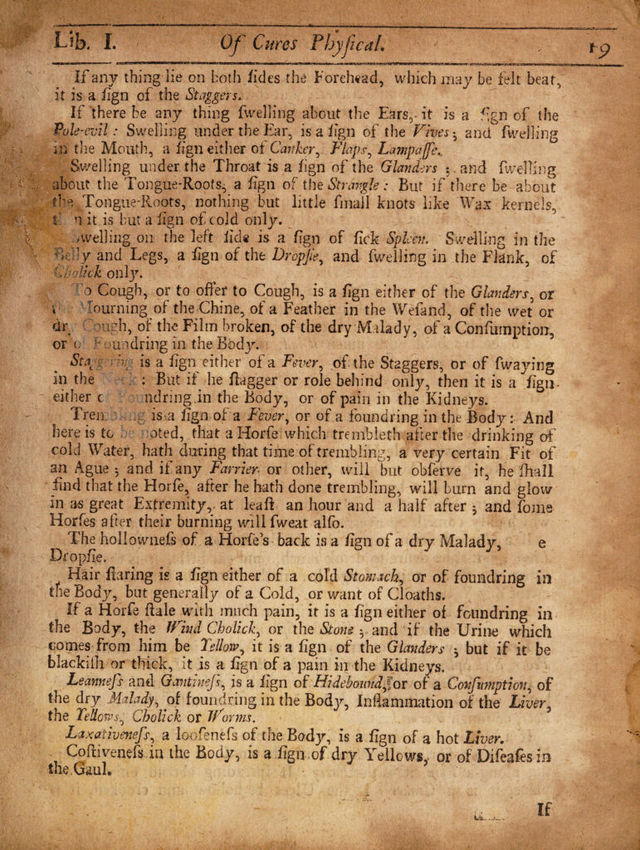 Lib. I. Of Cures Phyſical. 19
If any thing lie on both ſides the Forehead, which may be felt beat,
it is a ſign of the Staggers.
If there be any thing ſwelling about the Ears, it is a ſign of the
Pole-evil: Swelling under the Ear, is a ſign of the Vives; and ſwelling
in the Mouth, a ſign either of Canker, Flaps, Lampaſſe.
Swelling under the Throat is a ſign of the Glanders; and ſwelling
about the Tongue-Roots, a ſign of the Strangle: But if there be about
the Tongue-Roots, nothing but little ſmall knots like Wax kernels,
then it is but a ſign of cold only.
Swelling on the left ſide is a ſign of ſick Spleen. Swelling in the
Belly and Legs, a ſign of the Dropſie, and ſwelling in the Flank, of
Cholick only.
To Cough, or to offer to Cough, is a ſign either of the Glanders, or
the Mourning of the Chine, of a Feather in the Weſand, of the wet or
dry Cough, of the Film broken, of the dry Malady, of a Conſumption,
or of Foundring in the Body.
Staggering is a ſign either of a Fever, of the Staggers, or of ſwaying
in the Neck: But if he ſtagger or role behind only, then it is a ſign
either of Foundring in the Body, or of pain in the Kidneys.
Trembling is a ſign of a Fever, or of a foundring in the Body: And
here is to be noted, that a Horſe which trembleth after the drinking of
cold Water, hath during that time of trembling, a very certain Fit of
an Ague; and if any Farrier or other, will but obſerve it, he ſhall
find that the Horſe, after he hath done trembling, will burn and glow
in as great Extremity, at leaſt an hour and a half after; and ſome
Horſes after their burning will ſweat alſo.
The hollowneſs of a Horſe's back is a ſign of a dry Malady, e
Dropſie.
Hair ſtaring is a ſign either of a cold Stomach, or of foundring in
the Body, but generally of a Cold, or want of Cloaths.
If a Horſe ſtale with much pain, it is a ſign either of foundring in
the Body, the Wind Cholick, or the Stone; and if the Urine which
comes from him be Yellow, it is a ſign of the Glanders; but if it be
blackiſh or thick, it is a ſign of a pain in the Kidneys.
Leanneſs and Gantineſs, is a ſign of Hidebound, or of a Conſumption, of
the dry Malady, of foundring in the Body, Inflammation of the Liver,
the Yellows, Cholick or Worms.
Laxativeneſs, a looſeneſs of the Body, is a ſign of a hot Liver.
Coſtiveneſs in the Body, is a ſign of dry Yellows, or of Diſeaſes in
the Gaul.
If